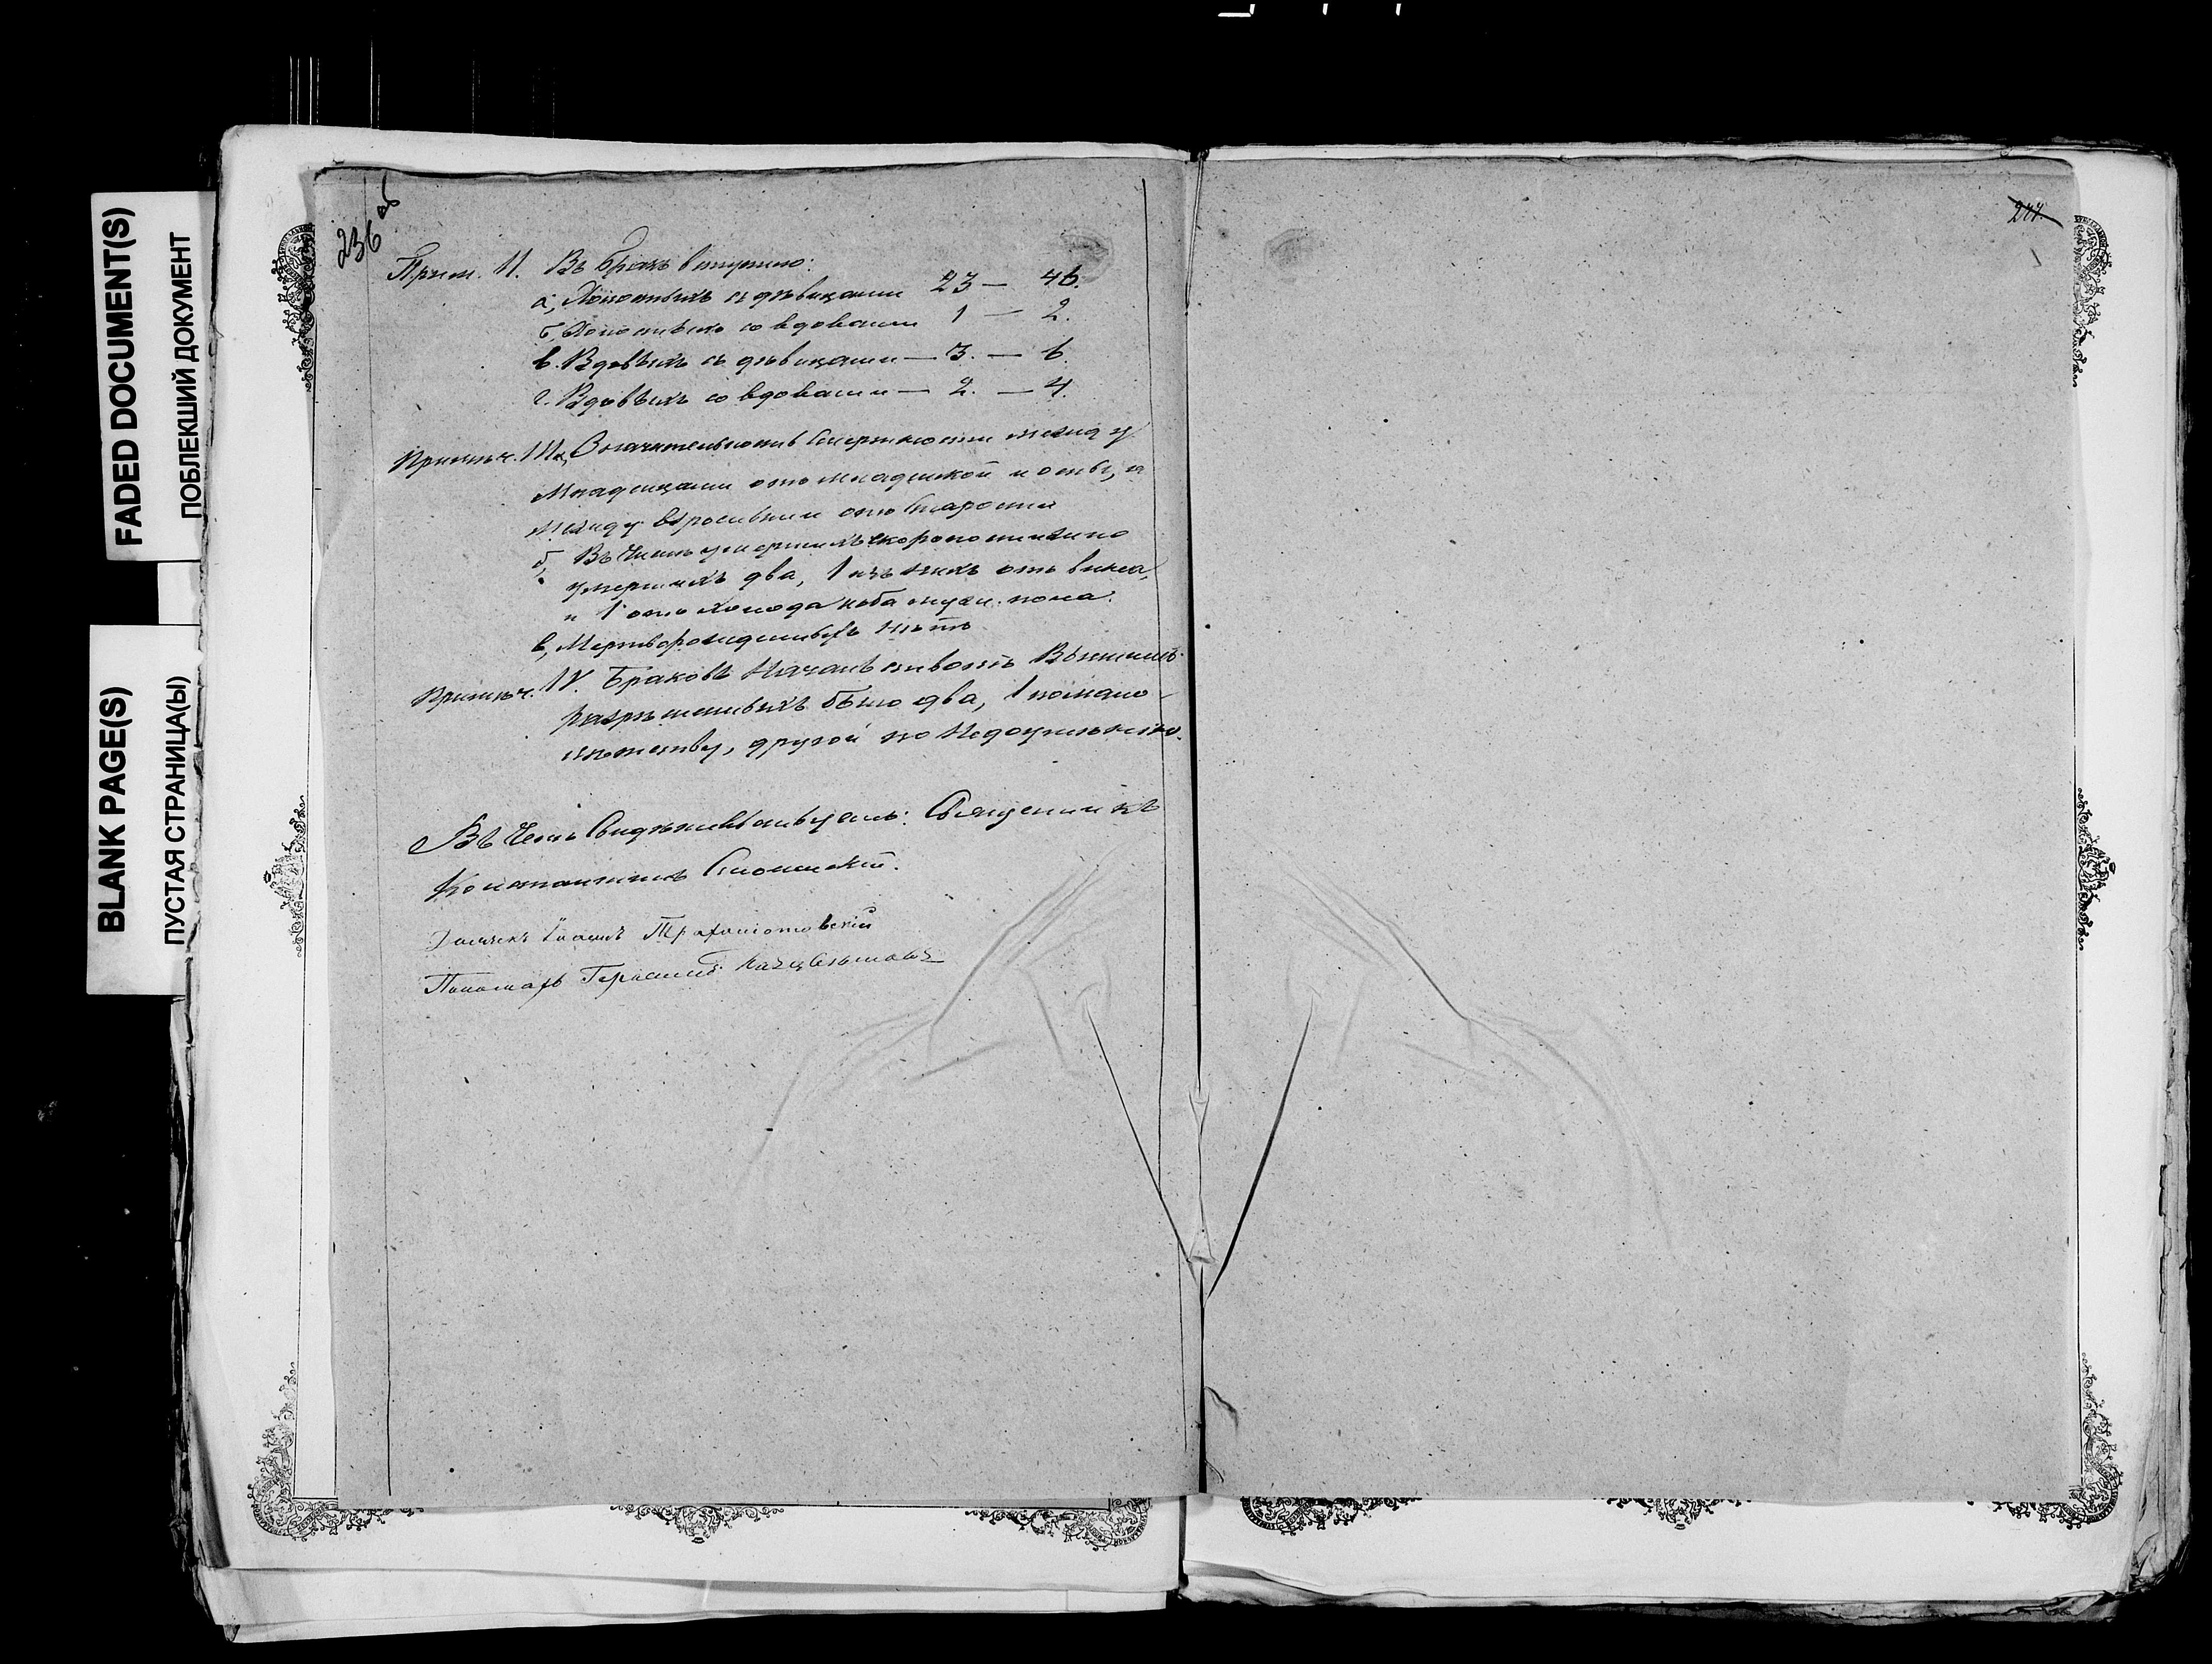 FADED DOCUMENT(S)
ПОБЛЕКШИЙ ДОКУМЕНТ
BLANK PAGE(S)
ПУСТАЯ СТРАНИЦА(Ы)
236 об
Прим. II. Въ бракъ вступило:
а, Холостыхъ съ дѣвицами 23 — 46.
б, Холостыхъ со вдовами 1 — 2.
в. Вдовыхъ съ дѣвицами — 3. — 6.
г. Вдовыхъ со вдовами — 2. — 4.
Примѣч. III а, Значительность смертности между
младенцами отъ младенской и оспы, а
между взрослыми отъ старости
б, Въ числѣ умершихъ скоропостижно
умершихъ два, 1 изъ нихъ отъ вина,
и 1 отъ холода оба муж. пола.
в, Мертворожденныхъ нѣтъ
Примѣч. IV. Браковъ Начальствомъ
разрѣшенныхъ было два, 1 по мало
лѣтству, другой по
Въ чемъ свидѣтельствуемъ: Священникъ
Константинъ
Дьячекъ Іоаннъ
Пономарь Герасимъ